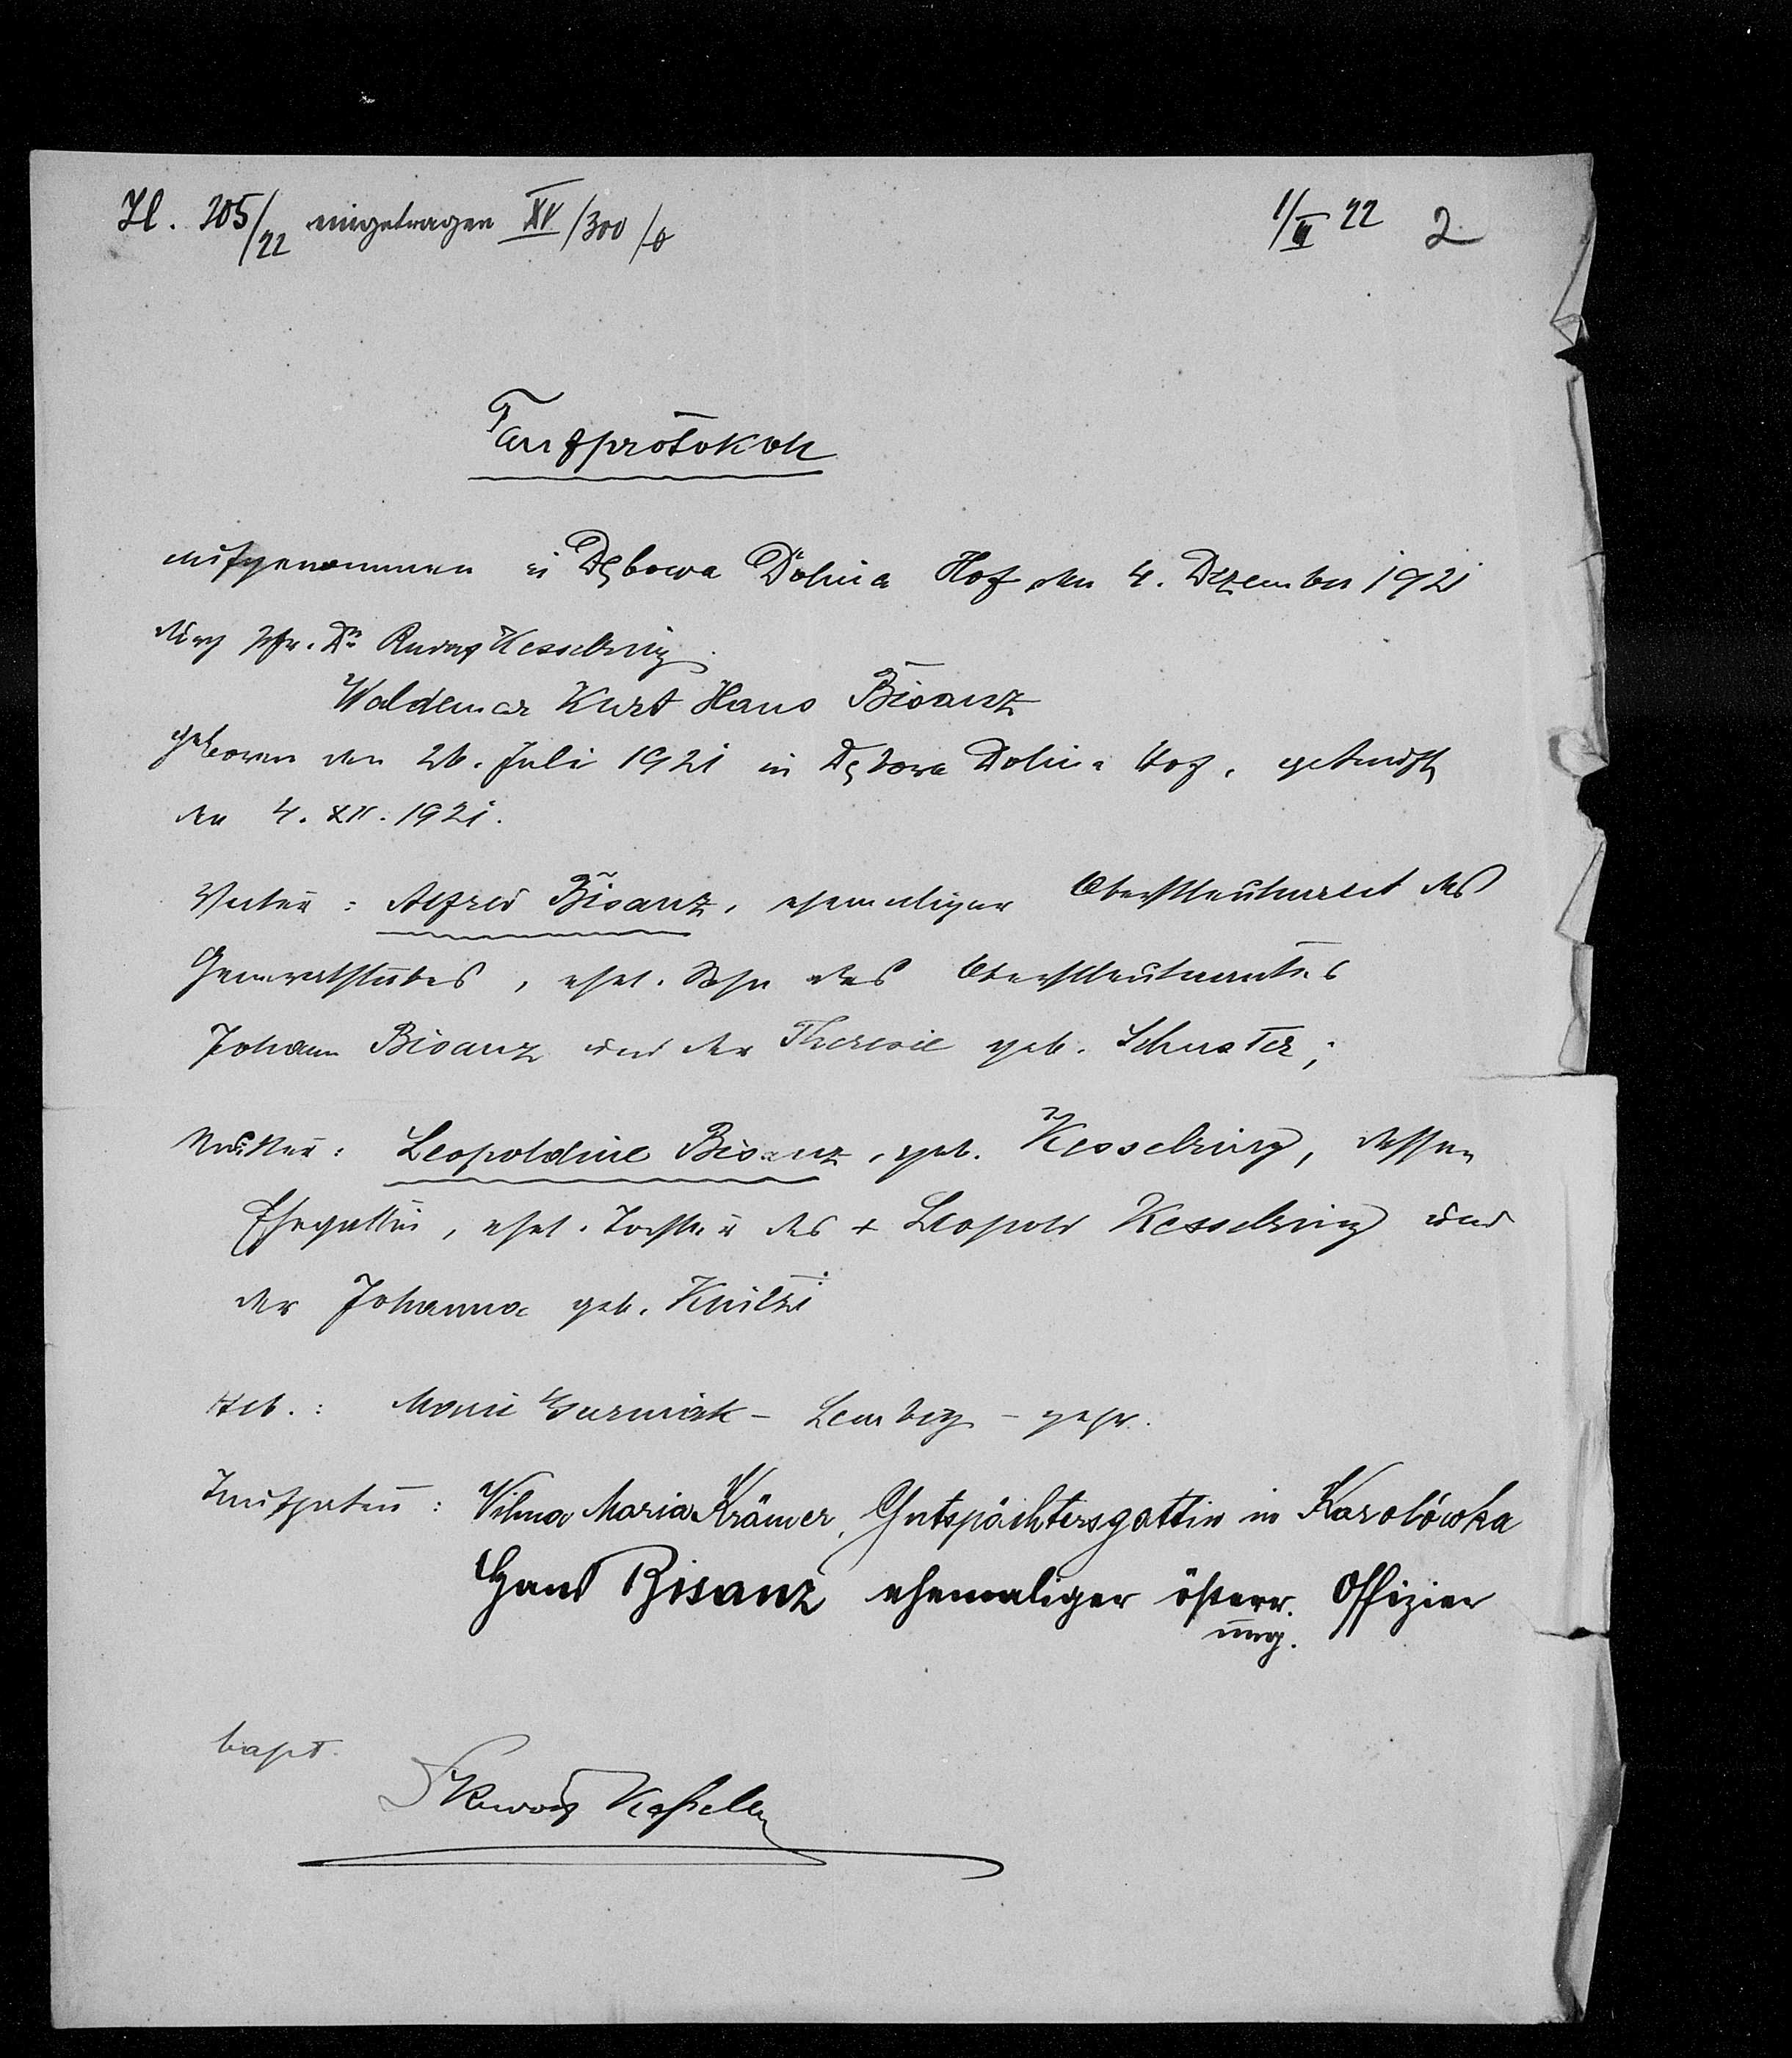 Zl. 205/22 eingetragen XV/300/8 1/III 22 2
Taufprotokoll
aufgenommen in Dębowa Dolina Hof den 4. Dezember 1921
durch Pfr. Dr. Rudolf Kesselring
Waldemar Kurt Hans Bisanz
geboren den 26. Juli 1921 in Dębowa Dolina Hof, getauft
den 4. XII. 1921.
Vater: Alfred Bisanz, ehemaliger Oberstleutnant des
Generalstabes, ehel. Sohn des Oberstleutnantes
Johann Bisanz und der Theresie geb. Schuster;
Mutter: Leopoldine Bisanz, geb. Kesselring, dessen
Ehegattin, ehel. Tochter des + Leopold Kesselring und
der Johanna geb.
Heb.: Marie - Lemberg - gepr.
Taufpaten: Vilma Maria Krämer, Gutspächtersgattin in Karolówka
Hans Bisanz ehemaliger österr. Offizier
ung.
bapt.
Dr Rudolf Kesselring